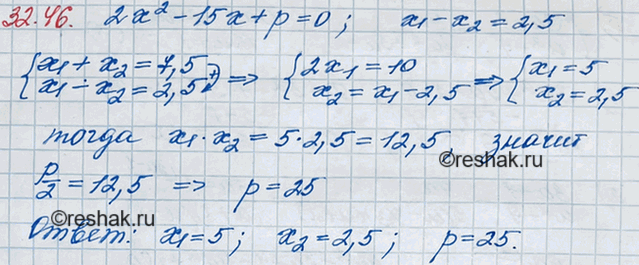 32.46. 2x² - 15x + p = 0; x₁ - x₂ = 2,5
{x₁ + x₂ = 7,5 x₁ - x₂ = 2,5 + => {2x₁ = 10 x₂ = x₁ - 2,5 => {x₁ = 5 x₂ = 2,5
тогда x₁ · x₂ = 5 · 2,5 = 12,5, значит
p/2 = 12,5 => p = 25
©reshak.ru
Ответ: x₁ = 5; x₂ = 2,5; p = 25.